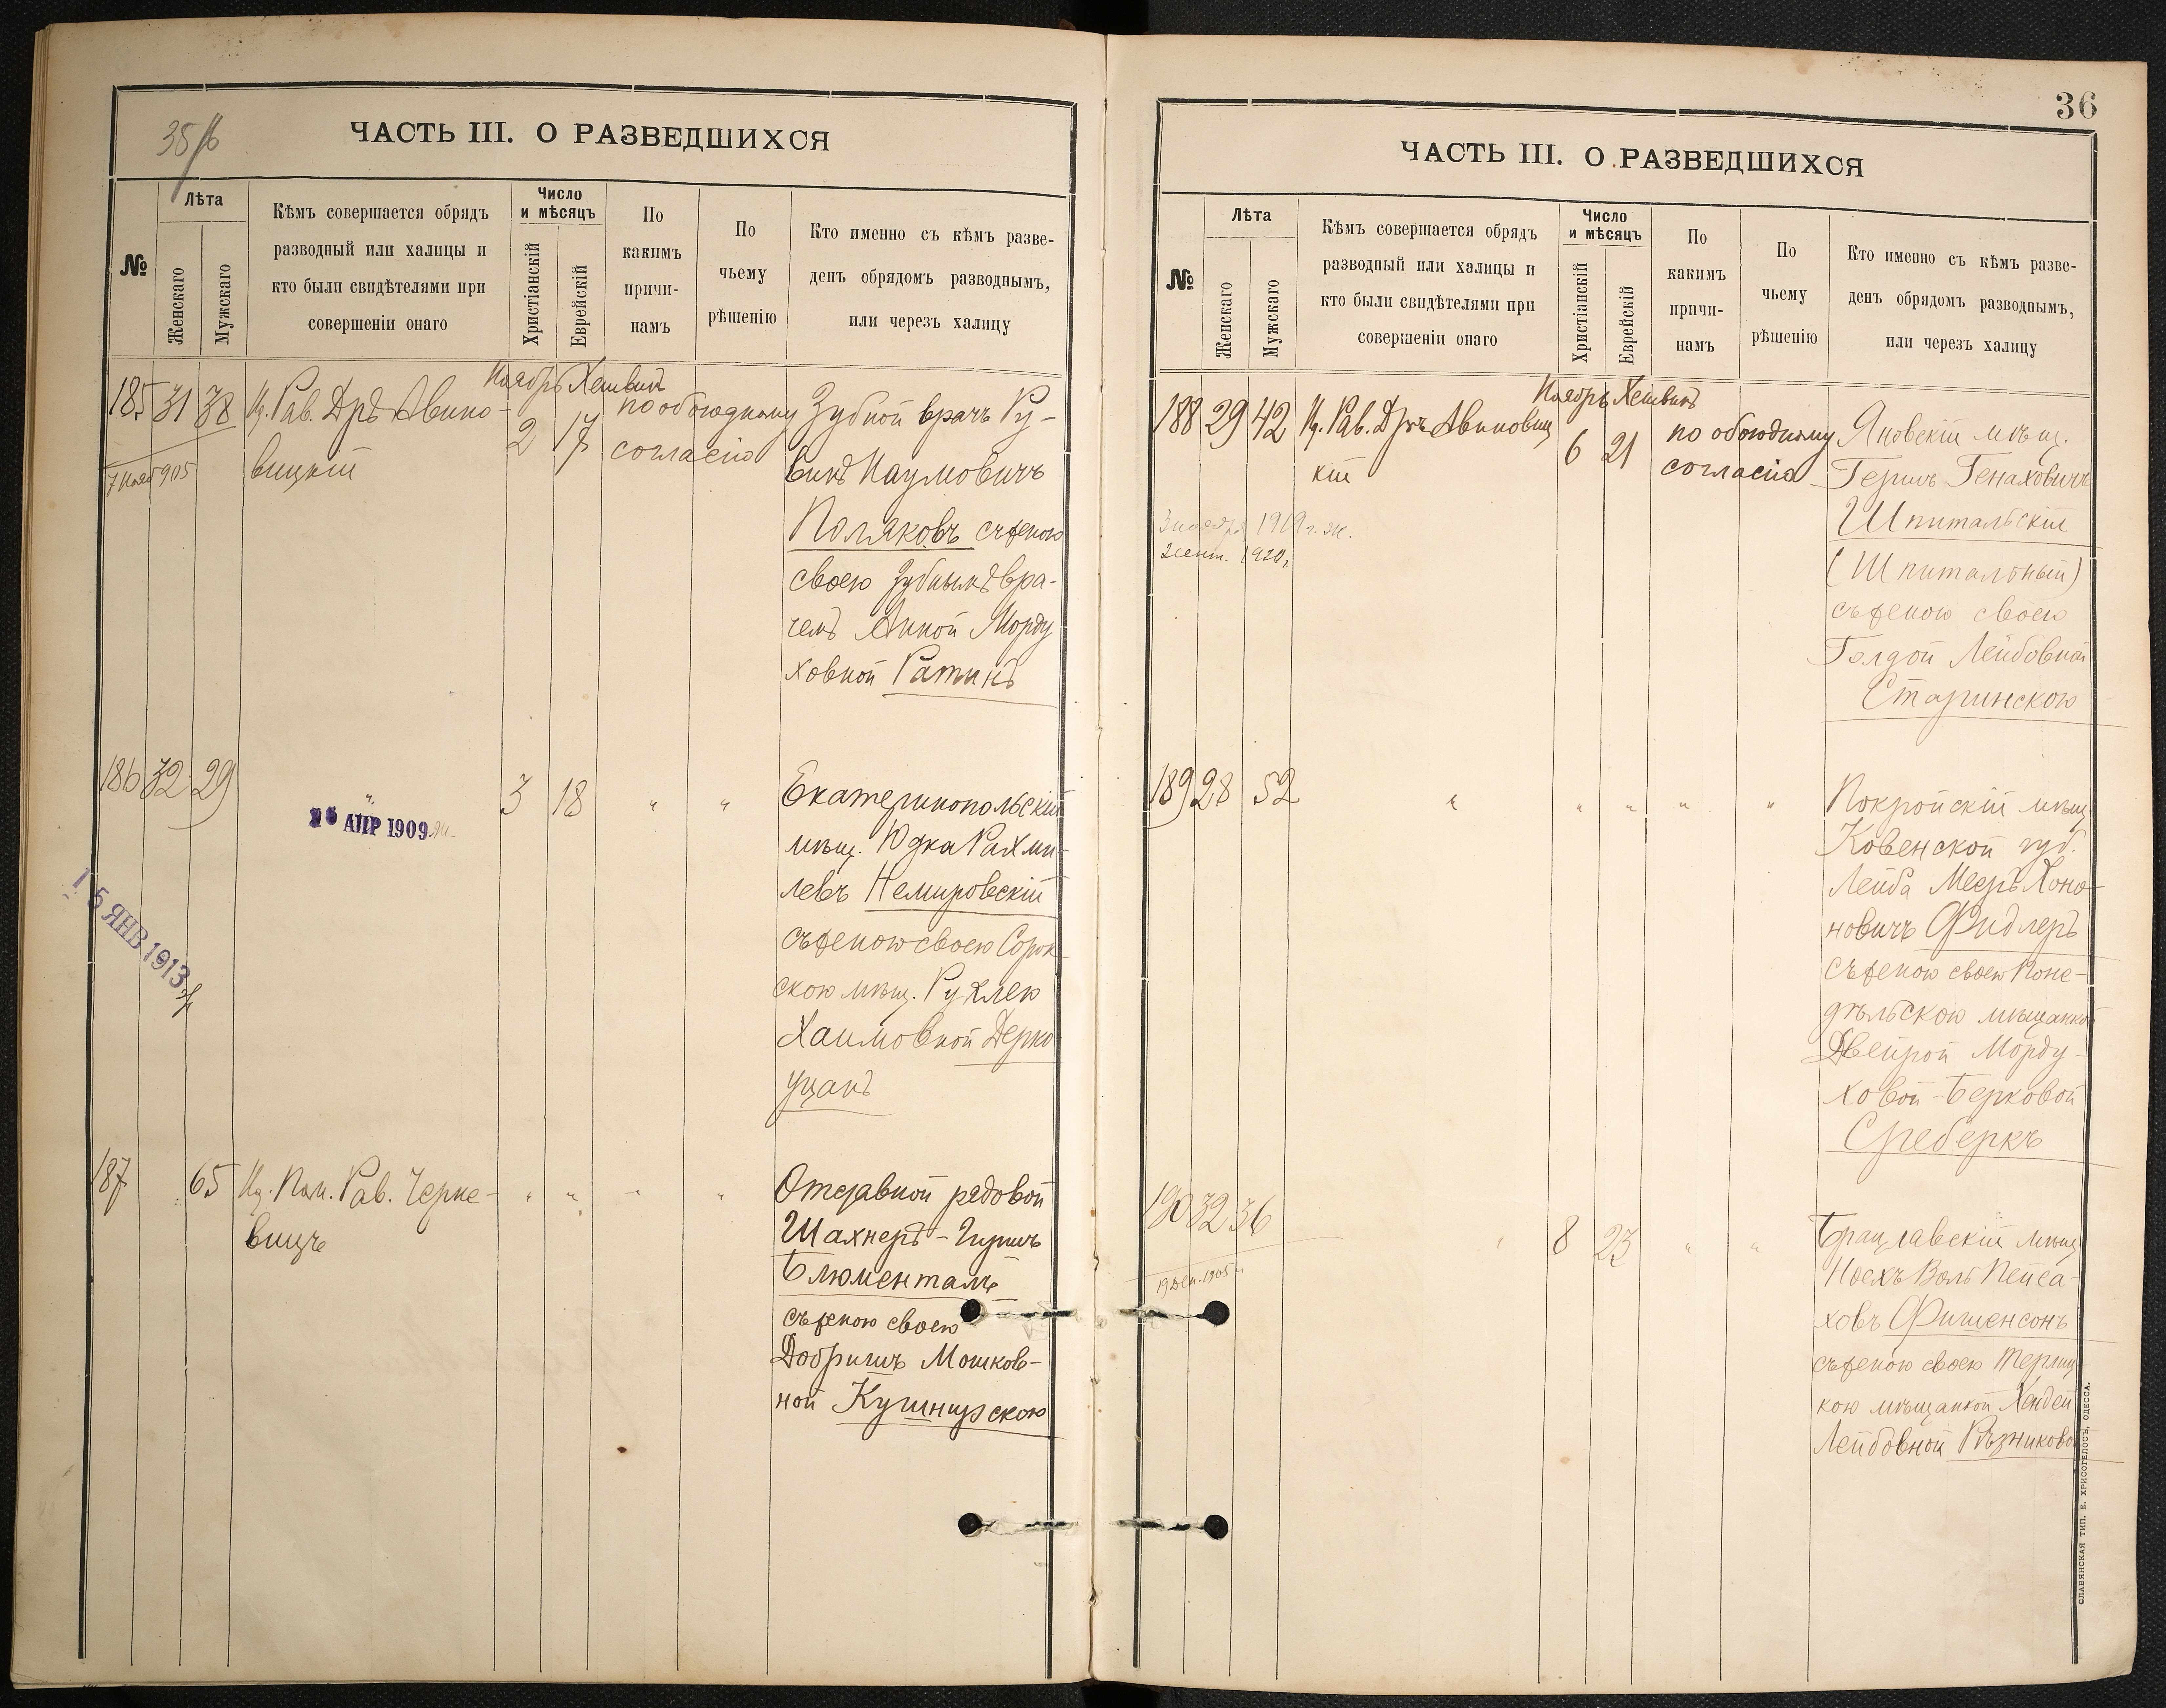 35/б
ЧАСТЬ III. О РАЗВЕДШИХСЯ
№
Лѣта
Женскаго
Мужскаго
Кѣмъ совершается обрядъ
разводный или халицы и
кто были свидѣтелями при
совершеніи онаго
Число
и мѣсяцъ
Христіанскій
Еврейскій
По
какимъ
причи-
намъ
По
чьему
рѣшенію
Кто именно съ кѣмъ разве-
денъ обрядомъ разводнымъ,
или черезъ халицу
Ноябрь Хешванъ
185 31 38 Рав. Дръ Авино-
вицкій
2 17
по обоюдному
согласію
Зубной врачъ Ру-
винъ Наумовичъ
Поляковъ съ женою
своею зубнымъ вра-
чемъ Анной Морду
ховной Ратинъ
7 Нояб 905
186 32 29 " 3 18 " "
АПР 1909
15 ЯНВ 1913
Екатеринопольскій
мѣщ. Юдка Рахми-
левъ Немировскій
съ женою своею Сорок-
скою мѣщ. Рухлею
Хаимовной Дерко
уцанъ
187 65 Пом. Рав. Черке-
вицъ
" " " "
Отставной рядовой
Шахнеръ-Гиршъ
Блюменталь
съ женою своею
Добришъ Мошков-
ной Кушнирскою
36
ЧАСТЬ III. О РАЗВЕДШИХСЯ
№
Лѣта
Женскаго
Мужскаго
Кѣмъ совершается обрядъ
разводный или халицы и
кто были свидѣтелями при
совершеніи онаго
Число
и мѣсяцъ
Христіанскій
Еврейскій
По
какимъ
причи-
намъ
По
чьему
рѣшенію
Кто именно съ кѣмъ разве-
денъ обрядомъ разводнымъ,
или черезъ халицу
Ноябрь Хешванъ
188 29 42 Рав. Дръ Авиновиц
кій
6 21
по обоюдному
согласію
3 ноября 1919 г.
2 сент. 1920,
Яновскій мѣщ.
Гершъ Генаховичъ
Шпитальскій
(Шпитальный)
съ женою своею
Голдой Лейбовной
Старинскою
189 28 52 " " " " "
Покройскій мѣщ.
Ковенской губ.
Лейба Мееръ Хоно-
новичъ Фидлеръ
съ женою своею Поне-
дѣльскою мѣщанкой
Двейрой Морду-
ховой-Берковой
Среберкъ
190 32 36 " 8 23 " "
19 Дек. 1905 г.
Брацлавскій мѣщ.
Носхъ Воль Пейса-
ховъ Фишенсонъ
съ женою своею Терлиц-
кою мѣщанкой Хендей
Лейбовной Рѣзниковой
СЛАВЯНСКАЯ ТИП. Е. ХРИСОГЕЛОСЪ, ОДЕССА.